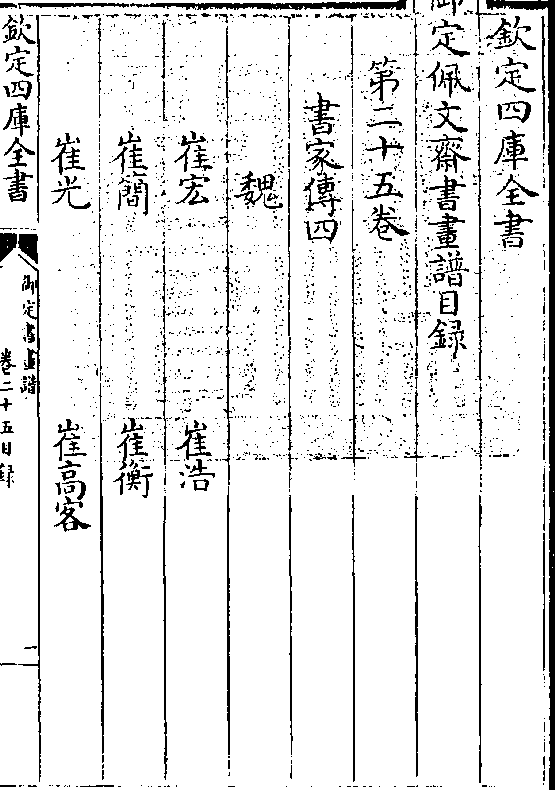 欽定四庫全書
御定佩文齋書畫譜目録
第二十五卷
書家傳四
魏
崔宏 崔浩
崔簡 崔衡
崔光 崔高客
欽定四庫全書
御定書畫譜
卷二十五目録
一